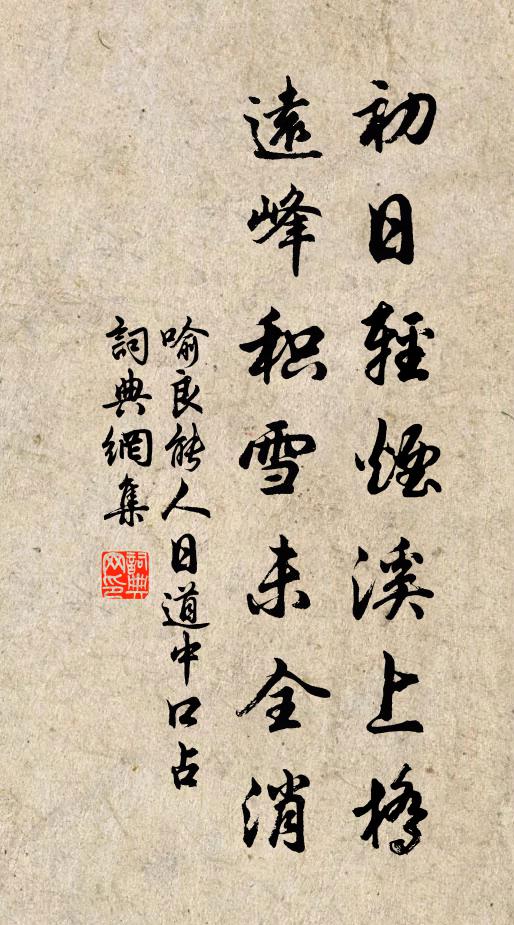 初日輕煙溪上橋
遠峰积雪未全消
喻良能人日道中口占
詞典網集
詞典网印